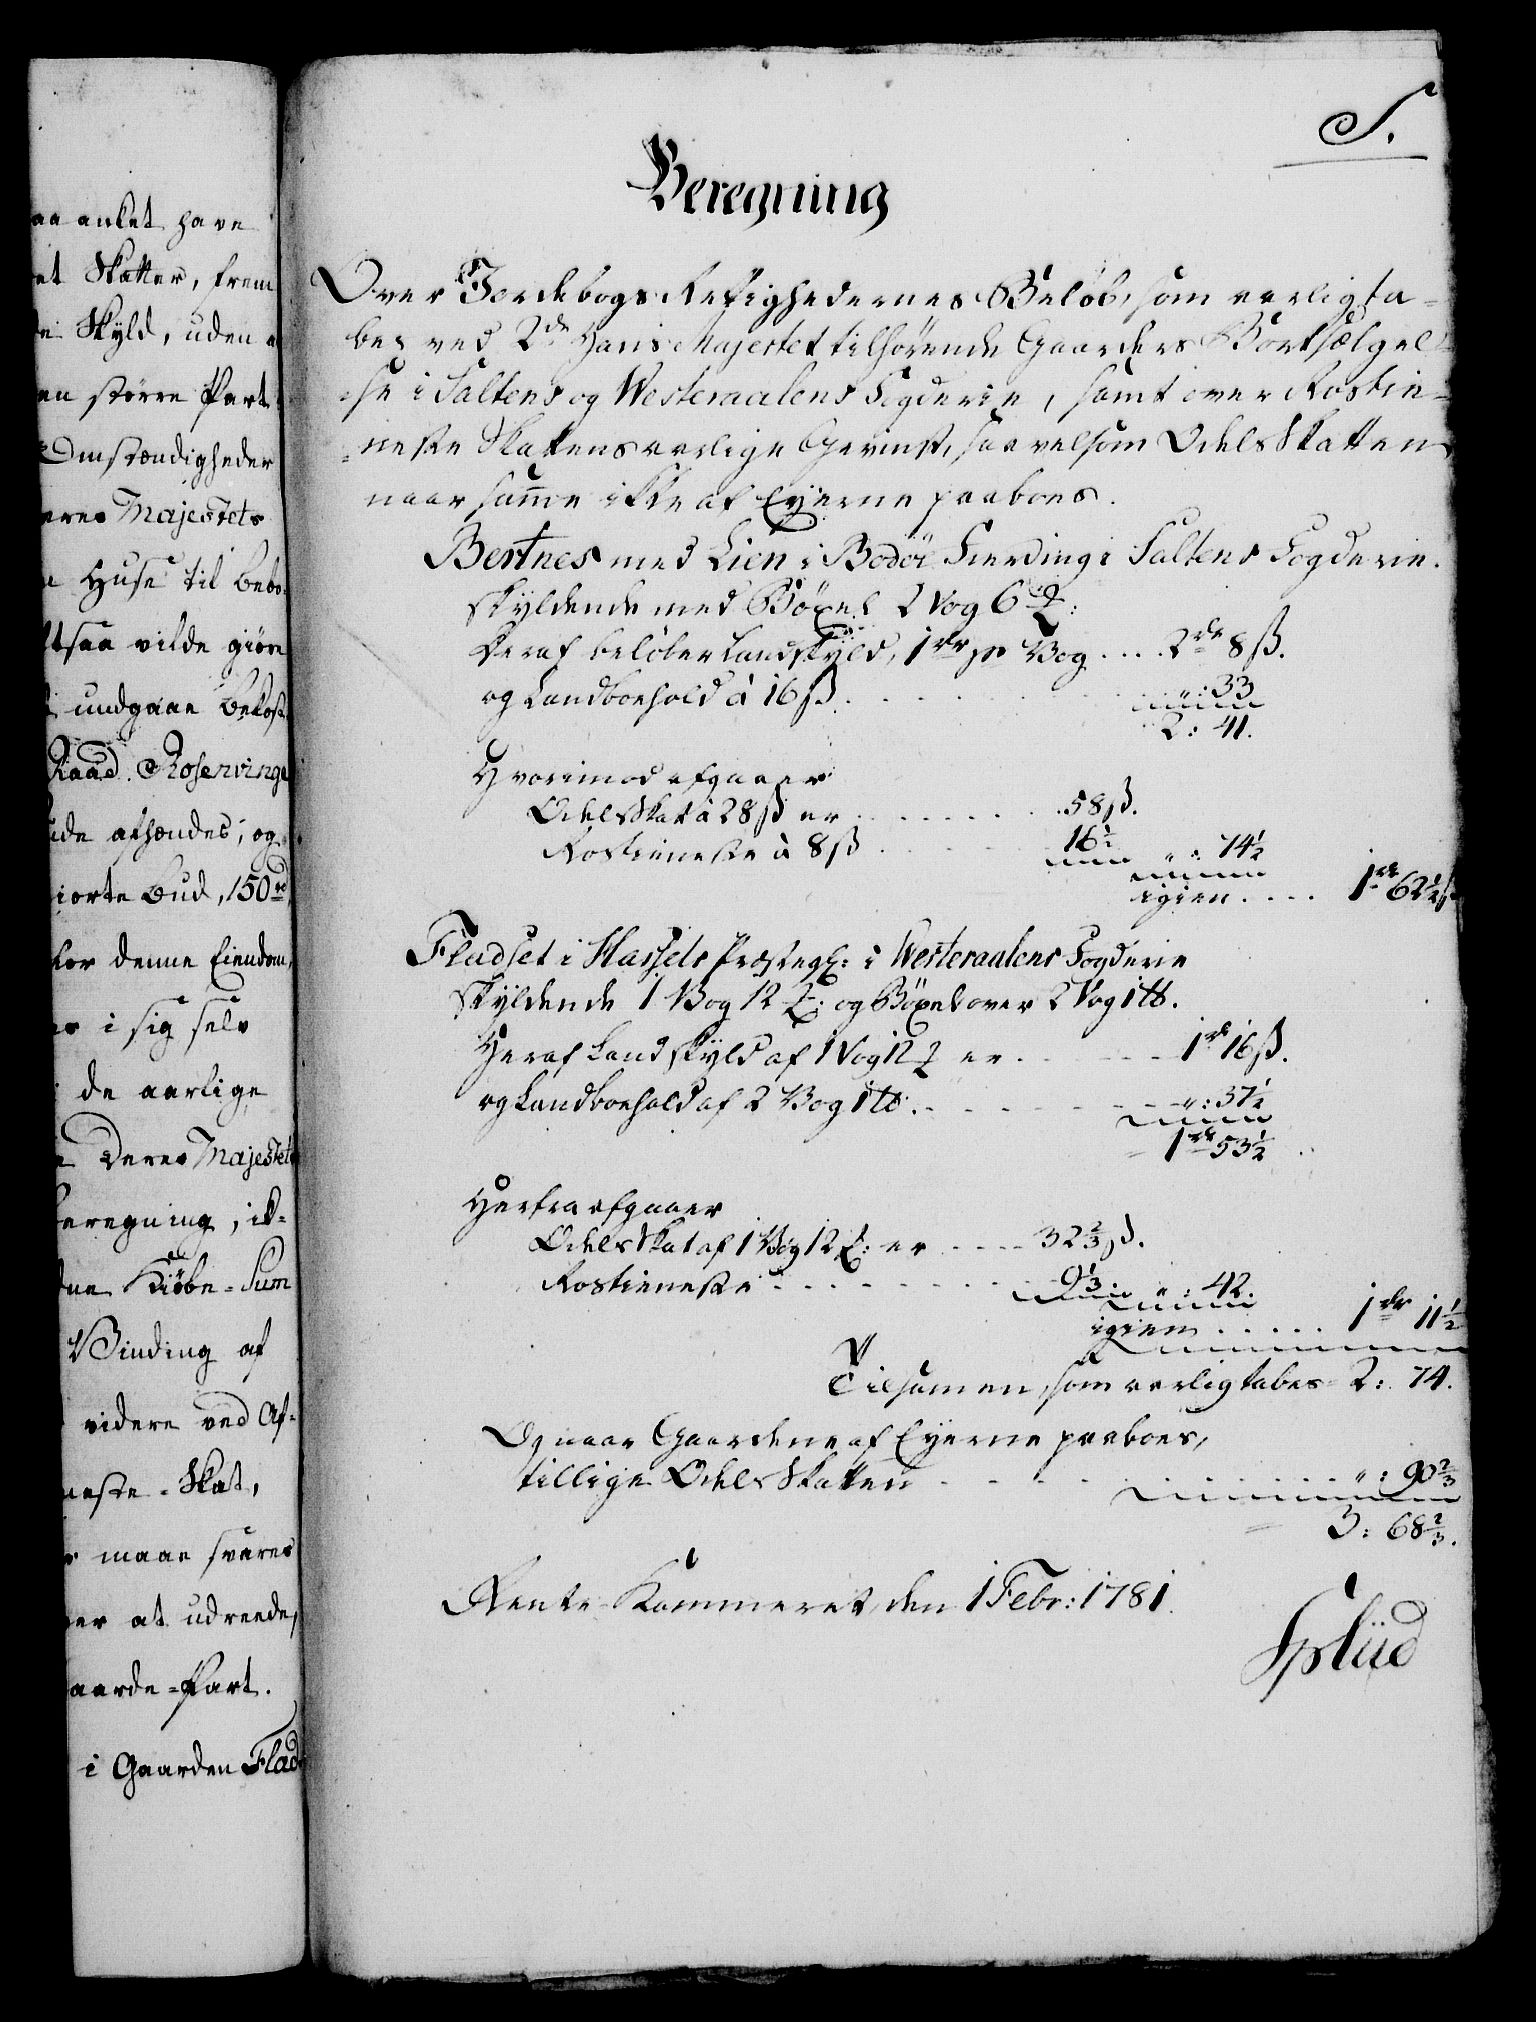 aa anket have
et Skatter, frem
de Skyld, uden
en større Part
Omstændigheder
eres Majestets
Huse til bebo-
ltsaa vilde giøre
undgaae Bekost
Raad Rosenvinge
ude afhændes; og
iorte Bud, 150 rd
for denne Eiendom,
i sig selv
de aarlige
Deres Majestets
beregning, ik-
Kiøbe-Sum
Binding af
videre ved Af-
neste-Skat,
maae svares
er at udreede,
aarde-Part.
i Gaarden Flad
S.
Beregning
Over Jordebogs Rettighedernes Beløb, som aarlig ta-
bes ved 2de Hans Majestet tilhørende Gaarders Bortsælgel-
se i Saltens og Westeraalens Fogderie, samt over Rostie-
neste Skattens aarlige Gevinst, saavelsom Odels Skatten
naar samme ikke af Eyerne paaboes.
Bertnes med Lien i Bodöe Fierding i Saltens Fogderie.
skyldende med Böxel 2 Vog 6 ℔:
Deraf beløber Landskyld, 1 rdr pr Vog .... 2 rdr 8 ß.
og Landboehold à 16 ß. . . . . „: 33
2: 41.
Hvorimod afgaaer
Odels Skat à 28 ß er . . . . . 58 ß.
Rostieneste à 8 ß . . . . 16½ „: 74½
igien .... 1 rdr 62½ ß
Fladset i Hassels Præstegl: i Westeraalens Fogderie
skyldende 1 Vog 12 ℔: og Böxel over 2 Vog 1 ℔.
Heraf Landskyld af 1 Vog 12 ℔ er . . . . 1 rdr 16 ß.
og Landboehold af 2 Vog 1 ℔. . . . . „: 37½
1 rdr 53½
Herfra afgaaer
Odels Skat af 1 Vog 12 ℔: er .... 32⅔ ß.
Rostieneste . . . . . 9⅓ „: 42.
igien ..... 1 rdr 11½
Tilsammen, som aarlig tabes 2: 74.
Og naar Gaardene af Eyerne paaboes,
tillige Odels Skatten . . . . . „: 90⅔
3: 68⅔.
Rente-Kammeret, den 1 Febr: 1781.